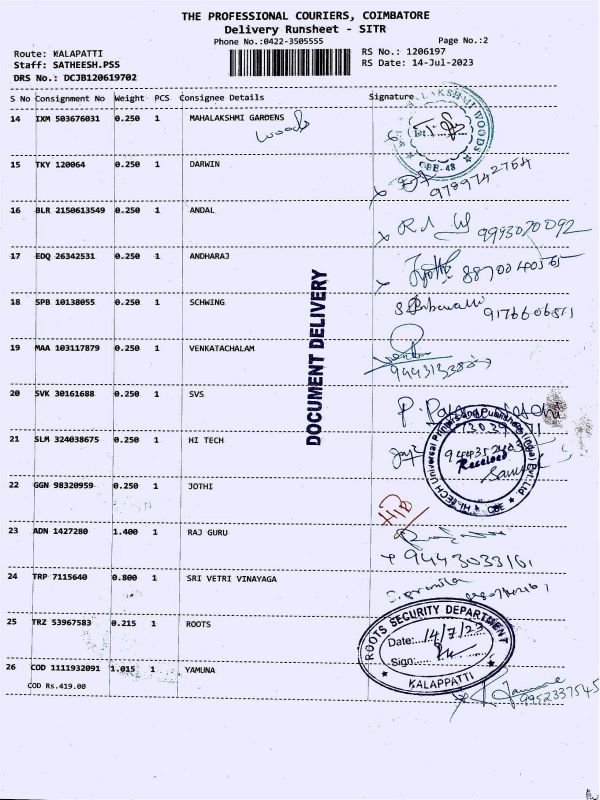 THE PROFESSIONAL COURIERS, COIMBATORE
Delivery Runsheet - SITR
Phone No.:0422-3505555 Page No.:2
Route: KALAPATTI RS No.: 1206197
Staff: SATHEESH.PSS RS Date: 14-Jul-2023
DRS No.: DCJB120619702
S No Consignment No Weight PCS Consignee Details Signature
14 IXM 503676031 0.250 1 MAHALAKSHMI GARDENS
Woods
CBE-48
15 TKY 120064 0.250 1 DARWIN
9789742764
16 BLR 2150613549 0.250 1 ANDAL
9993020092
17 EDQ 26342531 0.250 1 ANDHARAJ
8870040565
18 SPB 10138055 0.250 1 SCHWING
9176606511
DOCUMENT DELIVERY
19 MAA 103117879 0.250 1 VENKATACHALAM
20 SVK 30161688 0.250 1 SVS
21 SLM 324038675 0.250 1 HI TECH
HI-TECH Universal Printers and Publishers (India) Pvt. Ltd.
Received
CBE
22 GGN 98320959 0.250 1 JOTHI
23 ADN 1427280 1.400 1 RAJ GURU
9443033161
24 TRP 7115640 0.800 1 SRI VETRI VINAYAGA
25 TRZ 53967583 0.215 1 ROOTS
ROOTS SECURITY DEPARTMENT
Date: 14/7/23
Sign:
KALAPPATTI
26 COD 1111932091 1.015 1 YAMUNA
COD Rs.419.00
9952337545